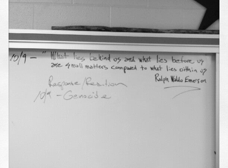 N/A - "What lies behind us and what lies before us
are small matters compared to what lies within us
Ralph Waldo Emerson
Response/
N/A - Genocide